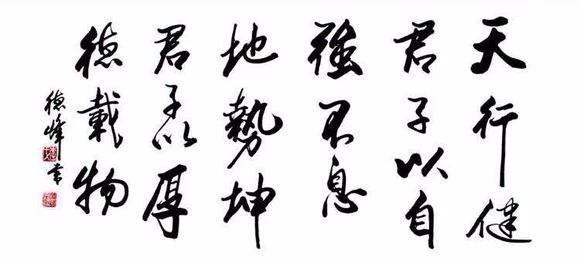 天行健
君子以自
强不息
地勢坤
君子以厚
德載物
德峰书